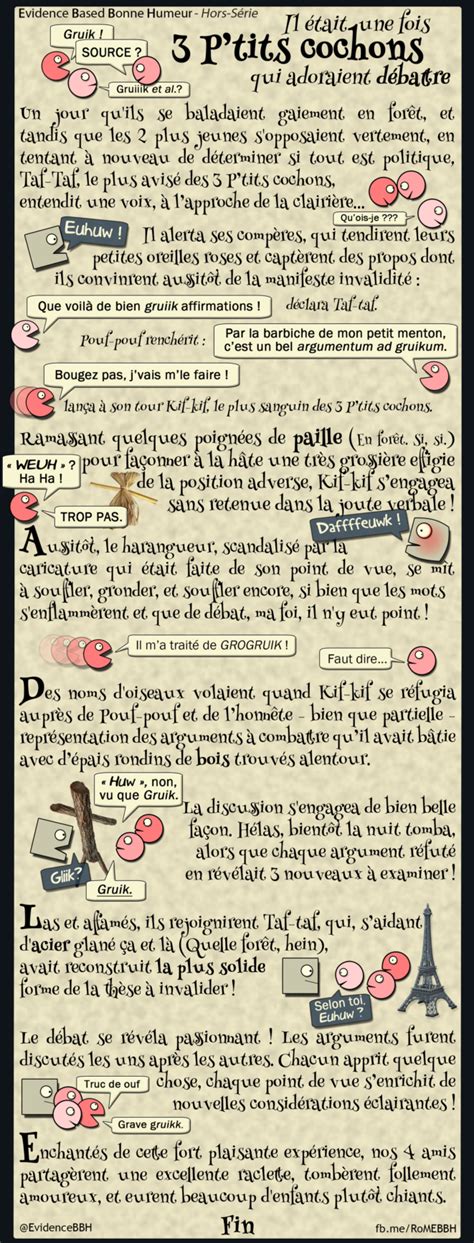 Evidence Based Bonne Humeur - Hors-Série
Il était une fois
3 P'tits cochons
qui adoraient débattre
Gruik !
SOURCE ?
Gruiiik et al.?
Un jour qu'ils se baladaient gaiement en forêt, et
tandis que les 2 plus jeunes s'opposaient vertement, en
tentant à nouveau de déterminer si tout est politique,
Taf-Taf, le plus avisé des 3 P'tits cochons,
entendit une voix, à l'approche de la clairière...
Qu'ois-je ???
Euhuw !
Il alerta ses compères, qui tendirent leurs
petites oreilles roses et captèrent des propos dont
ils convinrent aussitôt de la manifeste invalidité :
Que voilà de bien gruiik affirmations !
déclara Taf-taf.
Pouf-pouf renchérit :
Par la barbiche de mon petit menton,
c'est un bel argumentum ad gruikum.
Bougez pas, j'vais m'le faire !
lança à son tour Kif-kif, le plus sanguin des 3 P'tits cochons.
Ramassant quelques poignées de paille (En forêt. Si, si.)
pour façonner à la hâte une très grossière effigie
de la position adverse, Kif-kif s'engagea
sans retenue dans la joute verbale !
« WEUH » ?
Ha Ha !
TROP PAS.
Daffffeuwk !
Aussitôt, le harangueur, scandalisé par la
caricature qui était faite de son point de vue, se mit
à souffler, gronder, et souffler encore, si bien que les mots
s'enflammèrent et que de débat, ma foi, il n'y eut point !
Il m'a traité de GROGRUIK !
Faut dire...
Des noms d'oiseaux volaient quand Kif-kif se réfugia
auprès de Pouf-pouf et de l'honnête - bien que partielle -
représentation des arguments à combattre qu'il avait bâtie
avec d'épais rondins de bois trouvés alentour.
« Huw », non,
vu que Gruik.
Gliik?
Gruik.
La discussion s'engagea de bien belle
façon. Hélas, bientôt la nuit tomba,
alors que chaque argument réfuté
en révélait 3 nouveaux à examiner !
Las et affamés, ils rejoignirent Taf-taf, qui, s'aidant
d'acier glané ça et là (Quelle forêt, hein),
avait reconstruit la plus solide
forme de la thèse à invalider !
Selon toi,
Euhuw ?
Le débat se révéla passionnant ! Les arguments furent
discutés les uns après les autres. Chacun apprit quelque
chose, chaque point de vue s'enrichit de
nouvelles considérations éclairantes !
Truc de ouf
Grave gruikk.
Enchantés de cette fort plaisante expérience, nos 4 amis
partagèrent une excellente raclette, tombèrent follement
amoureux, et eurent beaucoup d'enfants plutôt chiants.
@EvidenceBBH
Fin
fb.me/RoMEBBH